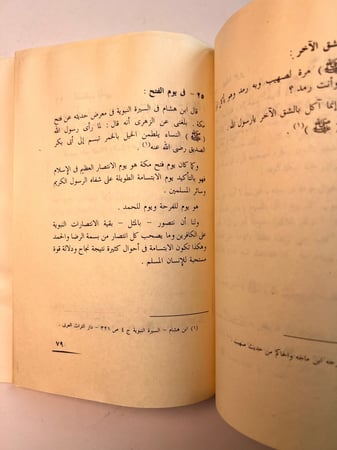 ٢٥ - فى يوم الفتح :
قال ابن هشام فى السيرة النبوية فى معرض حديثه عن فتح
مكة. بلغنى عن الزهرى أنه قال : لما رأى رسول الله
(ﷺ) النساء يلطمن الخيل بالخمر تبسم إلى أبى بكر
الصديق رضى الله عنه(١)
وكما كان يوم فتح مكة هو يوم الانتصار العظيم فى الإسلام
فهو بالتأكيد يوم الابتسامة الطويلة على شفاه الرسول الكريم
وسائر المسلمين .
هو يوم للفرحة ويوم للحمد .
ولنا أن نتصور - بالمثل - بقية الانتصارات النبوية
على الكافرين وما يصحب كل انتصار من بسمة الرضا والحمد
وهكذا تكون الابتسامة فى أحوال كثيرة نتيجة نجاح ودلالة قوة
مستحبة للإنسان المسلم .
(١) ابن هشام - السيرة النبوية ج ٤ ص ٣٢١ - دار التراث العربى .
٧٩
شق الآخر :
(ﷺ) مرة لصهيب وبه رمد وهو
وأنت رمد ؟
إنما آكل بالشق الآخر يارسول الله.
(ﷺ) (١) .
ابن ماجه والحاكم من حديث صهيب